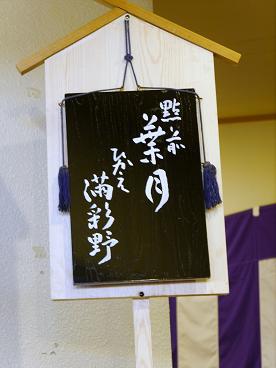 點前
葉月
ひかえ
満彩野